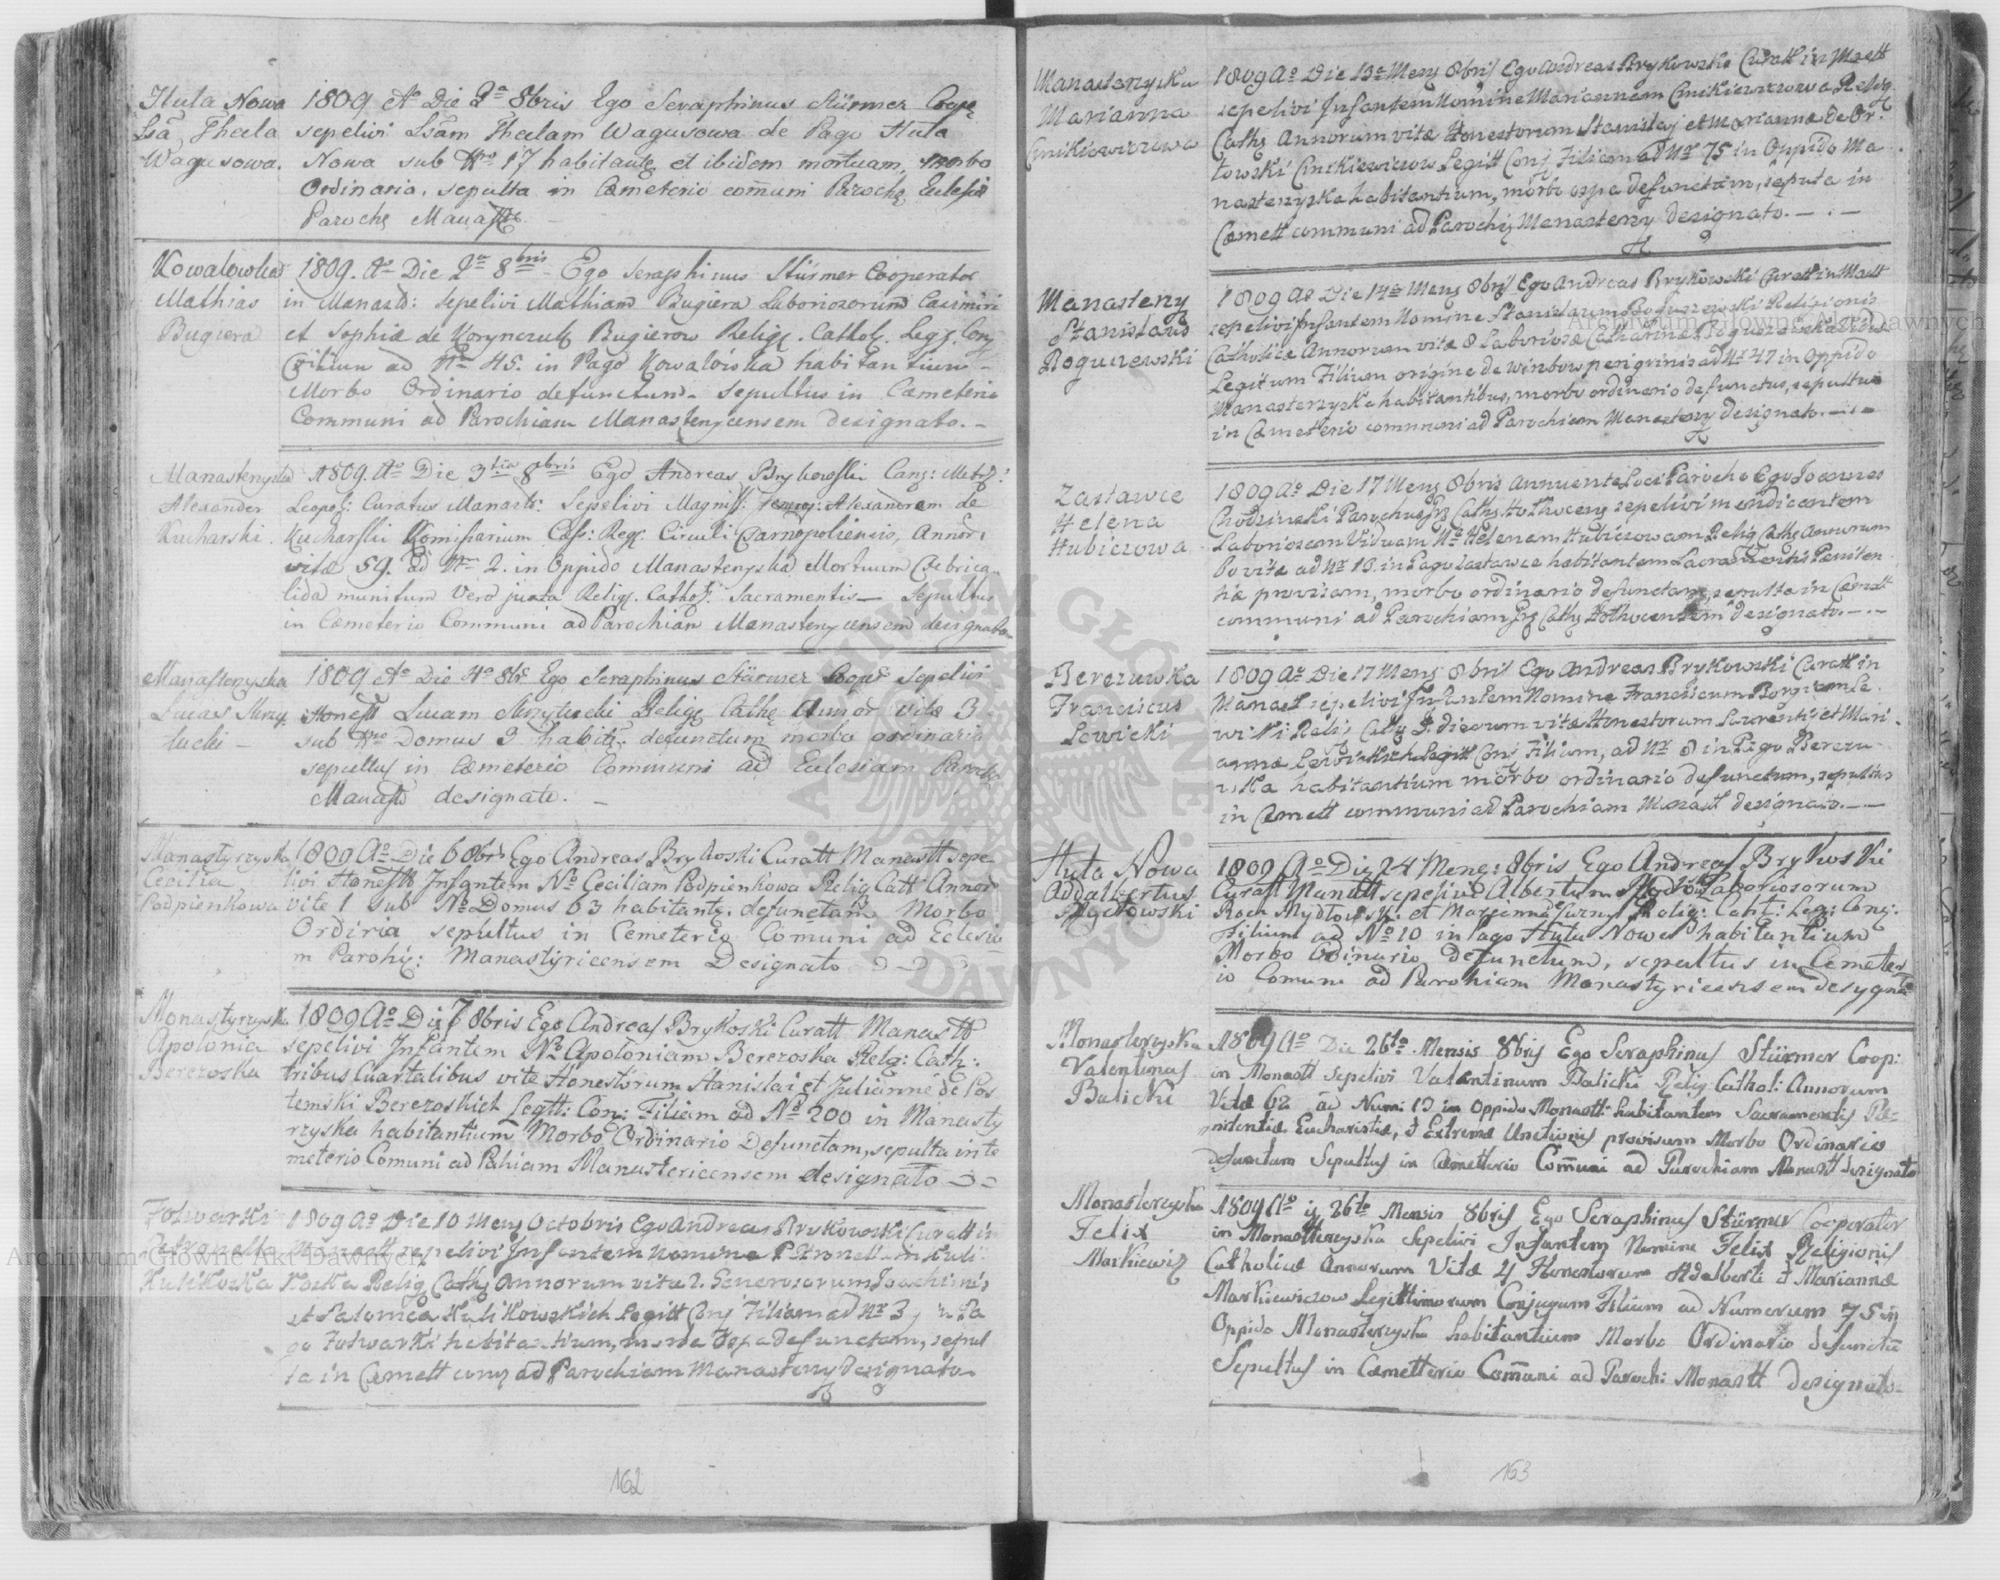 Huta Nowa
Lsa Thecla
Wagusowa.
1809 Ao Die 2a 8bris Ego Seraphinus Stürmer Coope
sepelivi Lsam Theclam Wagusowa de Pago Huta
Nowa sub Nro 17 habitante et ibidem mortuam, morbo
Ordinario, sepulta in Cæmeterio com̃uni Paroche Eclesiæ
Paroche Manast
Kowalowka
Mathias
Bugiera
1809. Ao Die 2a 8bris Ego Seraphinus Stürmer Cooperator
in Manast: sepelivi Mathiam Bugiera Laboriosorum Casimiri
et Sophiæ de Korynczuk Bugierow Relig. Cathol. Leg. Conj
Filium ad Nro 45. in Pago Kowalowka habitantium
Morbo Ordinario defunctum. sepultus in Cæmeterio
Communi ad Parochiam Manastenycensem designato.
Manastenyska
Alexander
Kucharski.
1809. Ao Die 3tia 8bris Ego Andreas Brykowski Can: Metr:
Leopol: Curatus Manast: Sepelivi Magnif: Alexandrum de
Kucharski Komissarium Cæs: Reg: Circuli Czarnopoliensis, Annor:
vitæ 59. ad Nro 2. in Oppido Manastenyska Mortuum Febri ca-
lida munitum vero juxta Relig. Cathol. Sacramentis – Sepultus
in Cæmeterio Communi ad Parochiam Manastenycensem designato
Manastenyska
Lucas Skrzy
tucki –
1809 Ao Die 4o 8br Ego Seraphinus Stürmer Coope sepelivi
Honest Lucam Skrzytucki Relig Cathe Annor vitæ 3
sub Nro Domus 9 habit: defunctum morbo ordinario
sepultus in Cæmeterio Communi ad Eclesiam Paroch
Manast designate. –
Manastyrzyska
Cecilia
Podpienkowa
1809 Ao Die 6 8bris Ego Andreas Brykoski Curatt Manastt sepe-
livi Honestt Infantem No Ceciliam Podpienkowa Relig Catt Annor
vite 1 sub No Domus 63 habitant. defunctam Morbo
Ordiria sepultus in Cemeterio Comuni ad Eclesia
m Parohi: Manastyricensem Designato
Monastyrzyska
Apolonia
Berezoska
1809 Ao Die 7 8bris Ego Andreas Brykoski Curatt Manastt
sepelivi Infantem No Apoloniam Berezoska Relg: Cath:
tribus Cuartalibus vite Honestorum Stanislai et Julianne de Pos
temski Berezoskich Legtt: Con: Filiam ad No 200 in Manasty
rzyska habitantium Morbo Ordinario Defunctam, sepulta in Ce
meterio Comuni ad Pahiam Manastericensem designato
Folwarki
Petronella
Kulikowska
1809 Ao Die 10 Mens Octobris Ego Andreas Brykowski Curatt in
Manastt sepelivi Infantem Nomine Petronellam Kuli
kowska Relig Cath Annorum vitæ 2. Generosorum Joachimi
et Salomea Kulikowskich Legitt Conj Filiam ad Nr 3, in Pa
go Folwarki habitantium, morbo Ospa defunctam, sepul
ta in Cæmett comn ad Parochiam Manasteny designato
162
Manastenyska
Marianna
Cmikiewiczowa
1809 Ao Die 13a Mens 8bris Ego Andreas Brykowski Curatt in Mastt
sepelivi Infantem Nomine Mariannam Cmikiewiczowa Relig
Cath Annorum vitæ Honestorum Stanislaj et Marianna de Or-
towski Cmikiewiczow Legitt Conj Filiam ad Nr 75 in Oppido Ma
nastenyska habitantium, morbo ospa defunctam, sepulta in
Cæmett communi ad Parochi Manasteny designato. – . –
Manasteny
Stanislaus
Roguszewski
1809 Ao Die 14a Mens 8bris Ego Andreas Brykowski Curatt in Mastt
sepelivi Infantem Nomine Stanislaum Roguszewski Religionis
Catholicæ Annorum vitæ 8 Laboriosæ Catharinæ Roguszewska
Legitum Filium origine de Winbow perigrinis ad Nr 47 in Oppido
Manasterzyska habitantibus, morbo ordinario defunctus, sepultus
in Cæmeterio communi ad Parochiam Manasteny designato. – . –
Zastawce
Helena
Hubiczowa
1809 Ao Die 17 Mens 8bris annuente Loci Parocho Ego Joannes
Chodzinski Parochus Cath Hothocens sepelivi mendicantem
Laboriosam Viduam No Helenam Hubiczowam Relig Cath Annorum
80 vitæ ad Nr 13. in Pago Zastawce habitantem Sacramentis Peniten
tiæ provisam, morbo ordinario defunctam, sepulta in Cæmett
communi ad Parochiam Cath Hothocensem designato. – . –
Berezuwka
Franciscus
Lewicki
1809 Ao Die 17 Mens 8bris Ego Andreas Brykowski Curatt in
Manast sepelivi Infantem Nomine Franciscum Borgiam Le
wicki Relig Cath 9 dierum vitæ Honestorum Laurentij et Mari-
anna Lewickich Legitt Conj Filium, ad Nr 8 in Pago Berezu
wka habitantium morbo ordinario defunctum, sepultus
in Cæmett communi ad Parochiam Manastt designato. – . –
Huta Nowa
Addalbertus
Mydtowski
1809 Ao Die 24 Mens: 8bris Ego Andreas Brykoski
Curatt Manatt sepelivi Albertum Mydtow Laboriosorum
Roch Mydtowski et Marianna Relig: Caht: Leg: Conj:
Filium ad No 10 in Pago Huta Nowa habitantium
Morbo Ordinario defunctum, sepultus in Cemeter
io Comuni ad Parohiam Monastyricensem desygna
Monasterzyska
Valentinus
Balicki
1809 Ao Die 26ta Mensis 8bris Ego Seraphinus Stürmer Coop:
in Monastt sepelivi Valentinum Balicki Relig Cathol: Annorum
Vitæ 62 ad Num: 13 in Oppido Monastt: habitantem Sacramentis Pæ-
nitentiæ Eucharistiæ, et Extremæ Unctionis provisum Morbo Ordinario
defunctum Sepultus in Cæmetterio Com̃uni ad Parochiam Monastt designato
Monasterzyska
Felix
Markiewicz
1809 Ao ij 26ta Mensis 8bris Ego Seraphinus Stürmer Cooperator
in Monasterzyska Sepelivi Infantem Nomine Felix Religionis
Catholicæ Annorum Vitæ 4 Honestorum Adalberti et Mariannæ
Markiewiczow Legittimorum Conjugum Filium ad Numerum 75 in
Oppido Monasterzyska habitantium Morbo Ordinario defunctũ
Sepultus in Cæmetterio Com̃uni ad Paroch: Monastt designato
163
Archiwum Główne Akt Dawnych
Archiwum Główne Akt Dawnych
ARCHIWUM GŁÓWNE AKT DAWNYCH